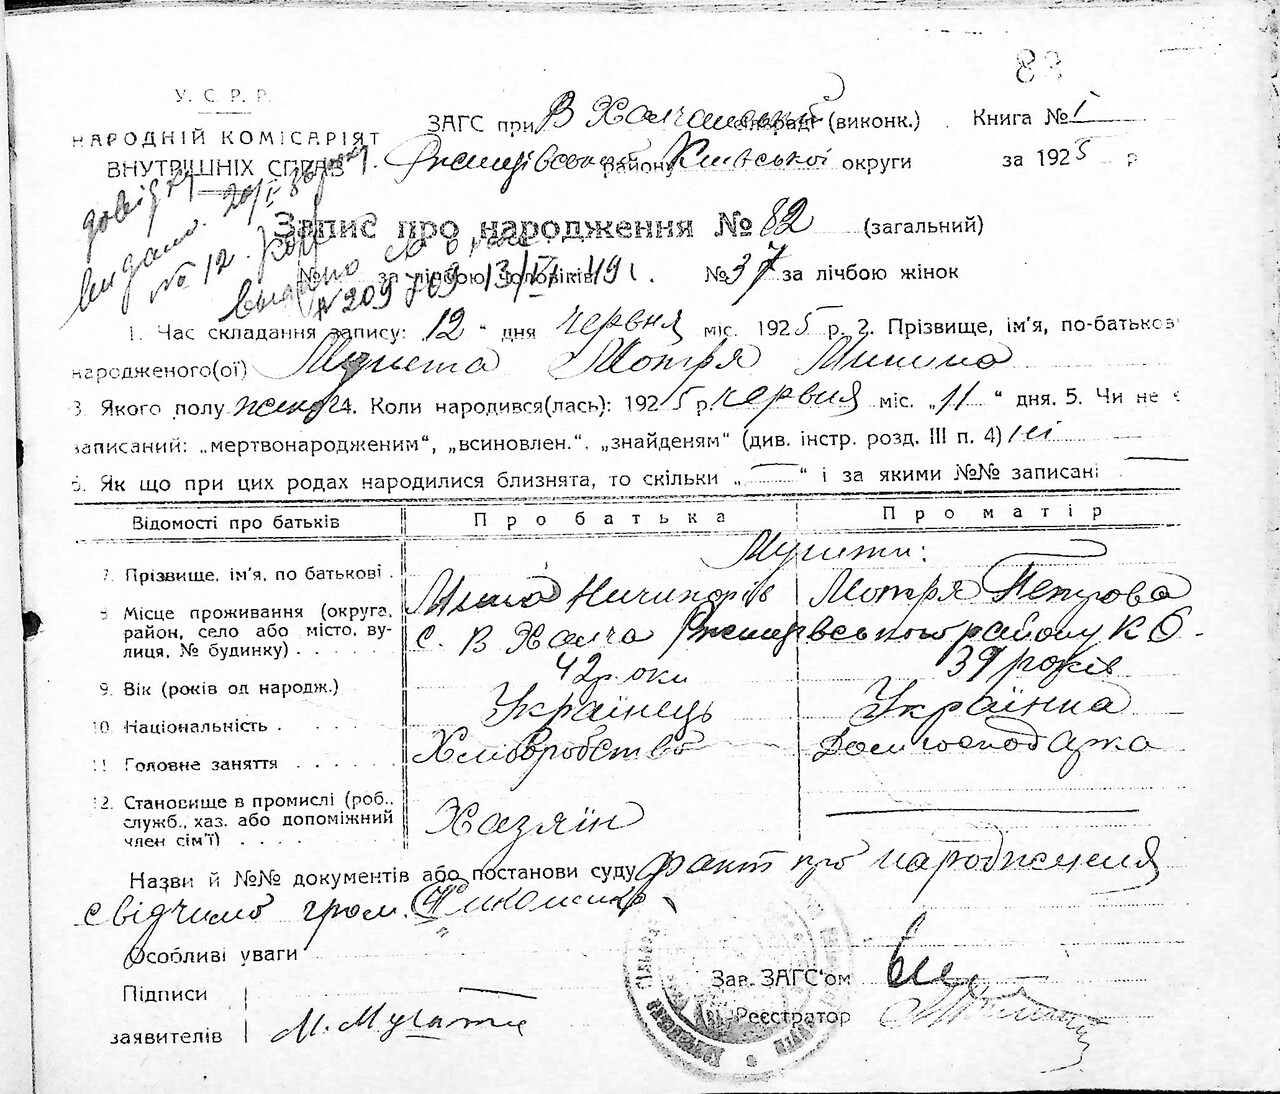 88
У. С. Р. Р.
НАРОДНІЙ КОМІСАРІЯТ
ВНУТРІШНІХ СПРАВ
ЗАГС при В Халчанській сільраді (виконк.) Книга № 1
Ржищівського району Київської округи за 1925 р
довідку
видано. 20/I 36
№ 12.
видано св о нар.
№ 209769 13/VI-49 г.
Запис про народження № 82 (загальний)
№ за лічбою чоловіків. № 37 за лічбою жінок
1. Час складання запису: 12 " дня червня міс. 1925 р. 2. Прізвище, ім'я, по-батьков
народженого(ої) Мотря Минина
3. Якого полу жіноч 4. Коли народився(лась): 1925 р. червня міс. „11 " дня. 5. Чи не є
записаний: „мертвонародженим", „всиновлен.", „знайденям" (див. інстр. розд. III п. 4) ні
6. Як що при цих родах народилися близнята, то скільки „ — " і за якими №№ записані —
Відомості про батьків Про батька Про матір
7. Прізвище, ім'я, по батькові . Мина Ничипорів Мотря Петрова
8 Місце проживання (округа,
район, село або місто, ву-
лиця, № будинку) . . . . . с. В Халча Ржищівського району К О.
9. Вік (років од народж.) 42 роки 39 років
10. Національність . . . . . Українець Українка
11 Головне заняття . . . . . Хліборобство Домгосподарка
12. Становище в промислі (роб.,
служб., хаз. або допоміжний
член сім'ї) . . . . Хазяїн —
Назви й №№ документів або постанови суду факт про народження
свідчимо гром.
Особливі уваги
Підписи
заявителів
Зав. ЗАГС'ом
Реєстратор